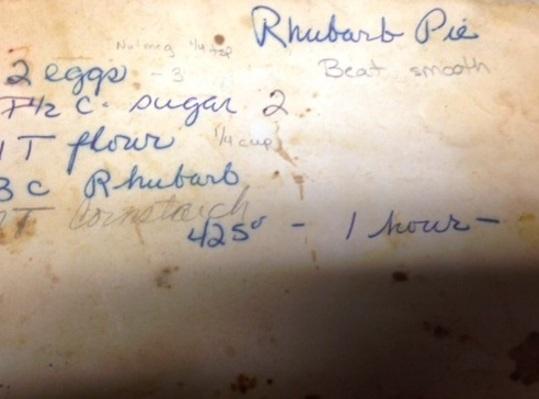 Rhubarb Pie
Nutmeg 1/4 tsp
2 eggs - 3
Beat smooth
1 1/2 C. sugar 2
1 T flour 1/4 cup
3 c Rhubarb
T Cornstarch
425° - 1 hour -